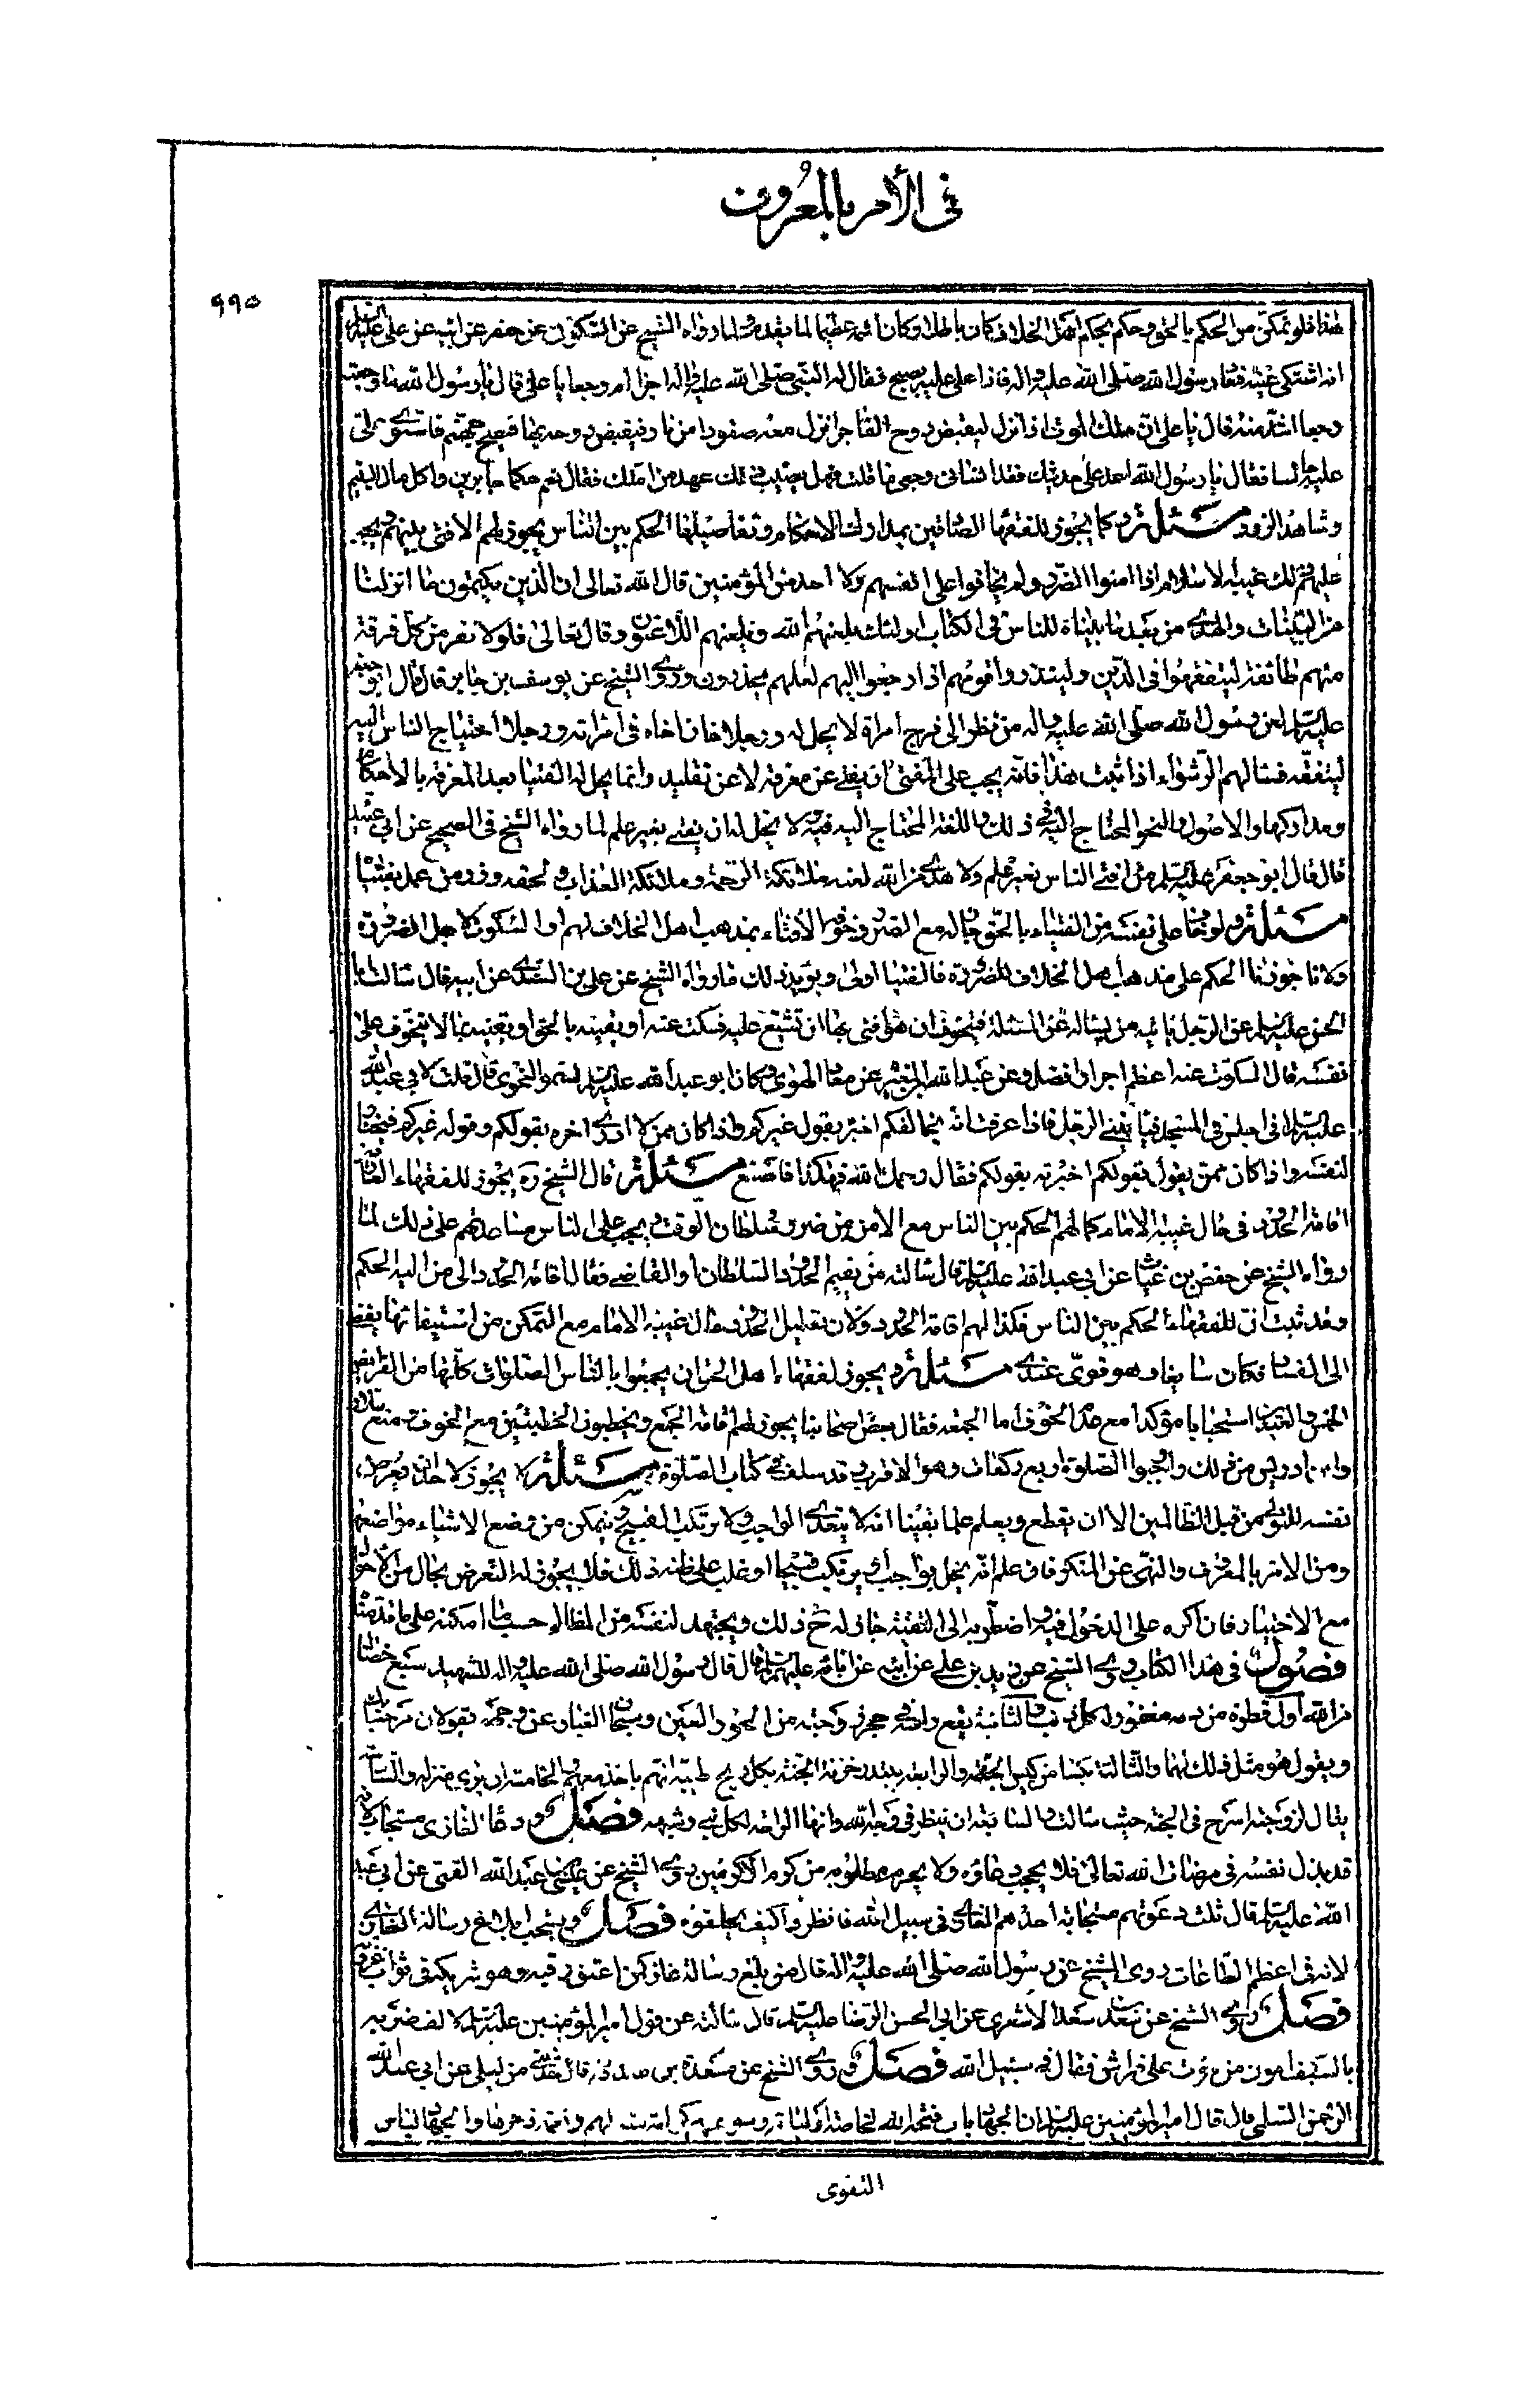 في الأمر بالمعروف
٩٩٥
هذا فلو تمكن من الحكم بالحق وحكم بحكم أهل الخلاف كان باطلا وكان اثمه عظيما لما يقدم لما رواه الشيخ عن السكوني عن جعفر عن ابيه عن علي عليه السلم
انه اشتكى عينه فعاده رسول الله صلى الله عليه واله فاذا علي عليه يصيح فقال له النبي صلى الله عليه واله اجزاام وجعا يا علي قال يا رسول الله ما وجعت
وجعا اشد منه قال يا علي ان ملك الموت اذا نزل ليقبض روح الفاجر انزل معه سفودا من نار فيقبض روحه بها فتصيح جهنم فاستوى علي
عليه السلم جالسا فقال يا رسول الله اعد علي حديثك فقد انساني وجعي ما قلت فهل يصيب ذلك عهد من امتك فقال نعم حكما جايرين واكل مال اليتيم
وشاهد الزور مسئلة وكما يجوز للفقهاء العارفين بمدارك الاحكام وتفاصيلها الحكم بين الناس يجوز لهم الافتاء بينهم ويجب
عليهم ذلك غيبة الامام اذا امنوا الضرر ولم يخافوا على انفسهم ولا احد من المؤمنين قال الله تعالى ان الذين يكتمون ما انزلنا
من البينات والهدى من بعد ما بيناه للناس في الكتاب اولئك يلعنهم الله ويلعنهم اللاعنون وقال تعالى فلولا نفر من كل فرقة
منهم طائفة ليتفقهوا في الدين ولينذروا قومهم اذا رجعوا اليهم لعلهم يحذرون وروى الشيخ عن يوسف بن جابر قال قال ابو جعفر
عليه السلم لعن رسول الله صلى الله عليه واله من نظر الى فرج امرأة لا يحل له ورجلا خان اخاه في امراته ورجلا احتياج الناس اليه
ليتفقه فسالهم الرشوة اذا ثبت هذا فانه يجب على المفتي ان يفتي عن معرفة لا عن تقليد وانما يحل له الفتيا بعد المعرفة بالأحكام
ومداركها والاصول والنحو المحتاج اليه في ذلك واللغة المحتاج اليه فيه ولا يحل له ان يفتي بغير علم لما رواه الشيخ في الصحيح عن ابي عبيدة
قال قال ابو جعفر عليه السلم من افتى الناس بغير علم ولا هدى من الله لعنه ملائكة الرحمة وملائكة العذاب ولحقه وزر من عمل بفتياه
مسئلة ولو خاف على نفسه من الفتياء بالحق جاز له مع الضرر وخوفه الافتاء بمذهب اهل الخلاف لهم او السكوت لاجل الضرورة
ولانا جوزنا الحكم على مذهب اهل الخلاف للضرورة فالفتيا اولى ويؤيد ذلك ما رواه الشيخ عن علي بن السندي عن ابيه قال سالت ابا
الحسن عليه السلم عن الرجل ياتيه من يساله عن المسئلة فيتخوف ان هو افتى بها ان تشنع عليه فسكت عنه او يفتيه بالحق او يفتيه بما لا يتخوف على
نفسه قال السكوت عنه اعظم اجرا وافضل وعن عبد الله بن المغيرة عن معاذ الهراء وكان ابو عبد الله عليه السلم يسميه النحوي قال قلت لابي عبد الله
عليه السلم اني اجلس في المسجد فياتيني الرجل فاذا عرفت انه يخالفكم اخبرته بقول غيركم واذا كان ممن لا ادري اخبره بقولكم وقول غيركم فيختار
لنفسه واذا كان ممن يقول بقولكم اخبرته بقولكم فقال رحمك الله فهكذا فاصنع مسئلة قال الشيخ ره يجوز للفقهاء العارفين
اقامة الحدود في حال غيبة الامام كما لهم الحكم بين الناس مع الامن من ضرر سلطان الوقت ويجب على الناس مساعدتهم على ذلك لما
رواه الشيخ عن حفص بن غياث عن ابي عبد الله عليه السلم قال سالته من يقيم الحدود السلطان او القاضي فقال اقامة الحدود الى من اليه الحكم
وقد ثبت ان للفقهاء الحكم بين الناس فكذا لهم اقامة الحدود ولان تعطيل الحدود حال غيبة الامام مع التمكن من استيفائها يفضي
الى الفساد فكان سايغا وهو قوي عندي مسئلة ويجوز لفقهاء اهل الحق ان يجمعوا بالناس الصلوات كلها من الفرايض
الخمس والعيدين استحبابا مؤكدا مع عدم الخوف اما الجمعة فقال بعض اصحابنا يجوز لهم اقامة الجمع ويخطبون الخطبتين مع الخوف ومنع سلار
وابن ادريس من ذلك واوجبوا الصلوة اربع ركعات وهو الاقرب وقد سلف في كتاب الصلوة مسئلة لا يجوز لاحد ان يعرض
نفسه للتولي من قبل الظالمين الا ان يقطع ويعلم علما يقينا انه لا يتعدى الواجب ولا يرتكب القبيح ويتمكن من وضع الاشياء مواضعها
ومن الامر بالمعروف والنهي عن المنكر فان علم انه يخل بواجب او يرتكب قبيحا او غلب على ظنه ذلك فلا يجوز له التعرض بحال من الأحوال
مع الاختيار فان اكره على الدخول فيه واضطر به الى التقية جاز له ح ذلك ويجتهد لنفسه من المظالم حسب ما امكنه على ما قدمناه
فصول في هذا الكتاب روى الشيخ عن زيد بن علي عن ابيه عن ابائه عليهم السلم قال قال رسول الله صلى الله عليه واله للشهيد سبع خصال
من الله اول قطرة من دمه مغفور له كل ذنب والثانية يقع راسه في حجر زوجتيه من الحور العين ويمسحان الغبار عن وجهه تقولان مرحبا بك
ويقول هو مثل ذلك لهما والثالثة يكسا من كسوة الجنة والرابعة يبتدر خزنة الجنة بكل ريح طيبة ايهم ياخذه معه والخامسة ان يرى منزله والسادسة
يقال لروحه اسرح في الجنة حيث شئت والسابعة ان ينظر في وجه الله وانها الراحة لكل نبي وشهيد فصل ودعا الغازي مستجاب لانه
قد بذل نفسه في مرضات الله تعالى فلا يحجب دعاؤه ولا يحرم مطلوبه من كرم الاكرمين روى الشيخ عن عيسى بن عبد الله القمي عن ابي عبد
الله عليه السلم قال ثلث دعوتهم مستجابة احدهم الغازي في سبيل الله فانظروا كيف تخلفوه فصل ويستحب ابلاغ رسالة الغازي
لانه في اعظم الطاعات روى الشيخ عن رسول الله صلى الله عليه واله قال من بلغ رسالة غاز كمن اعتق رقبة وهو شريكه في ثواب غزوته
فصل روى الشيخ عن سعد بن سعد الاشعري عن ابي الحسن الرضا عليه السلم قال سالته عن قول امير المؤمنين عليه السلم لالف ضربة
بالسيف اهون من موت على فراش فقال في سبيل الله فصل روى الشيخ عن مسعدة بن صدقة قال حدثني من ليلى عن ابي عبد الله
الرحمن السلمي قال قال امير المؤمنين عليه السلم ان الجهاد باب فتحه الله لخاصة اوليائه وسوغهم كرامة منه لهم ونعمة ذخرها والجهاد لباس
التقوى